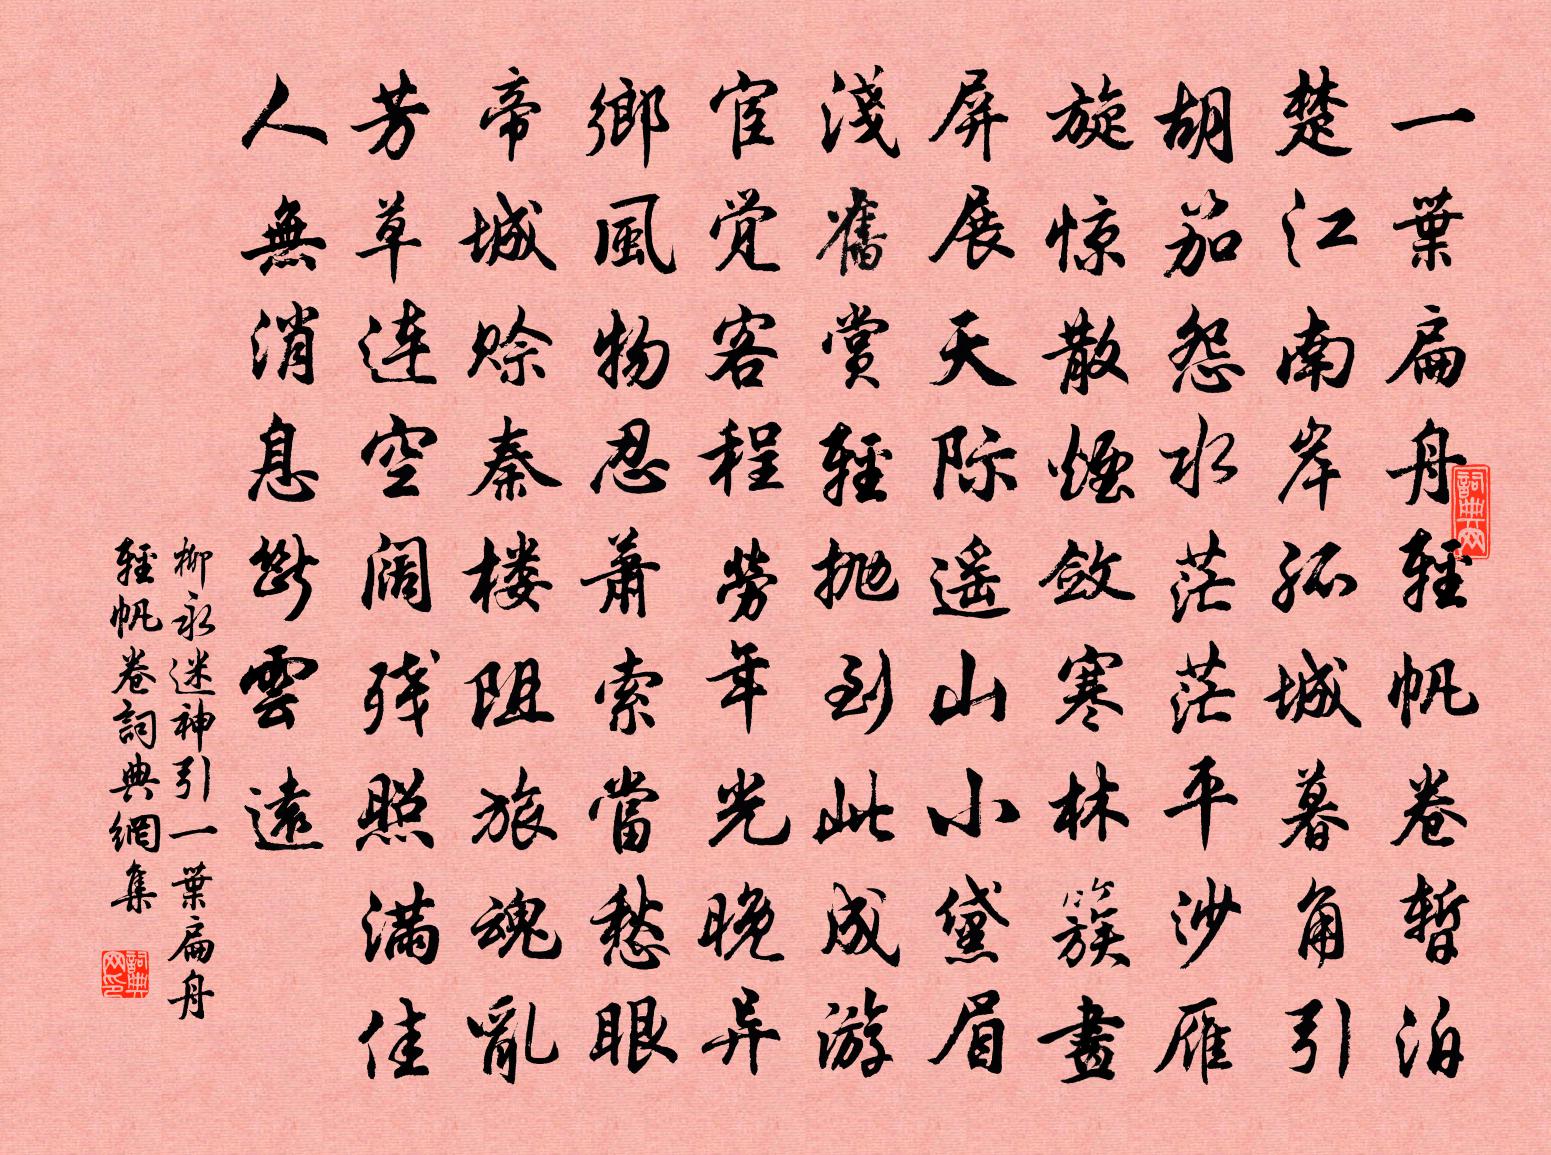 一葉扁舟輕帆卷暫泊
楚江南岸孤城暮角引
胡笳怨水茫茫平沙雁
旋惊散煙敛寒林簇畫
屏展天际遥山小黛眉
淺舊賞輕抛到此成游
宦觉客程勞年光晚异
鄉風物忍蕭索當愁眼
帝城赊秦楼阻旅魂亂
芳草连空阔残照满佳
人無消息斷雲遠
柳永迷神引一葉扁舟
輕帆卷詞典網集
詞典网
詞典网印